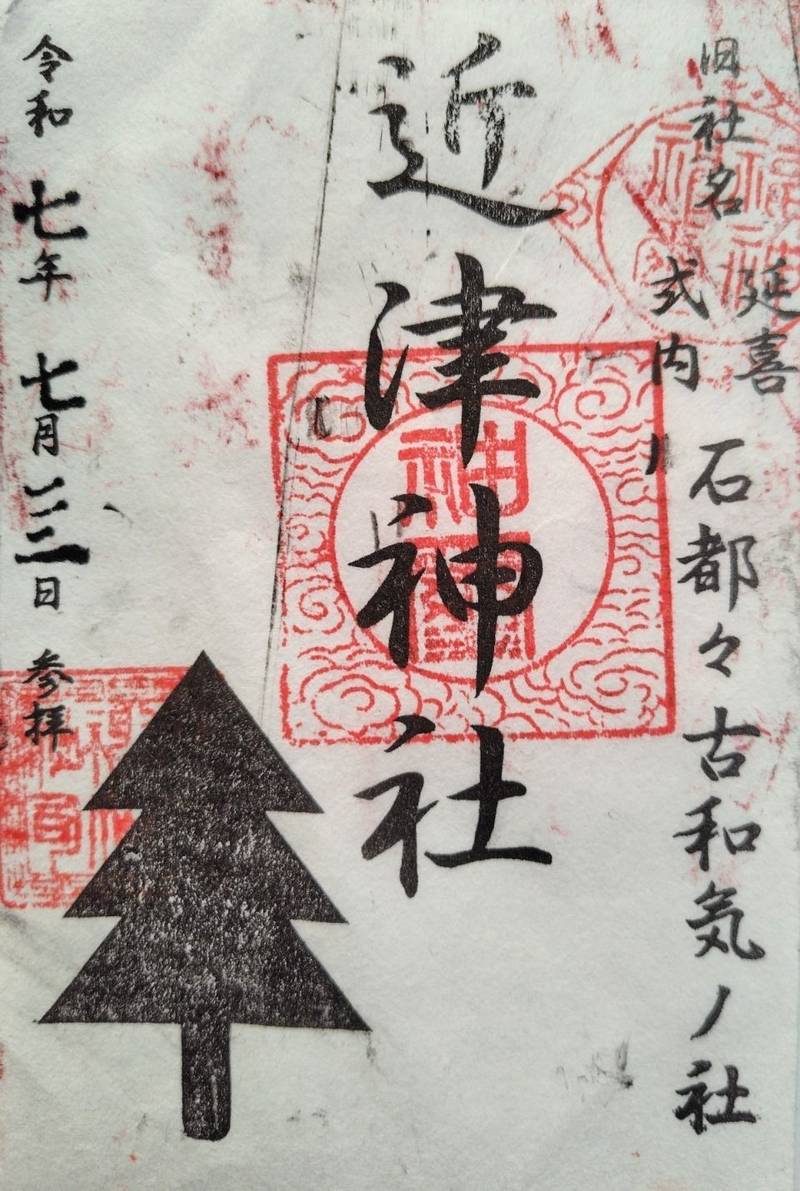 旧社名
延喜
式内ノ
石都々古和気ノ社
近津神社
令和七年七月二三日参拝